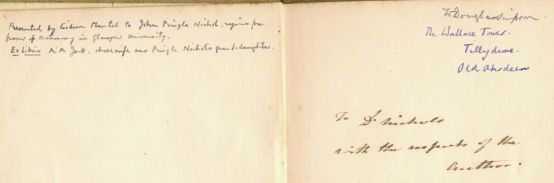 Presented by Gideon Mantel to John Pringle Nichol, regius pro-
fessor of astronomy in Glasgow University.
Ex Libris A.A. Jack, whose wife was Pringle Nichol's grand-daughter.
W. Douglas Simpson.
The Wallace Tower.
Tillydrone.
Old Aberdeen
To Dr Nichols
with the respects of the
Author.